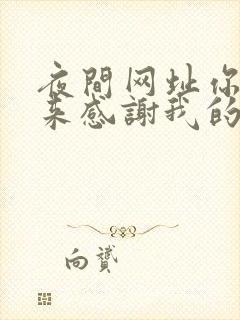 夜間网址你
来感謝我的
向贊